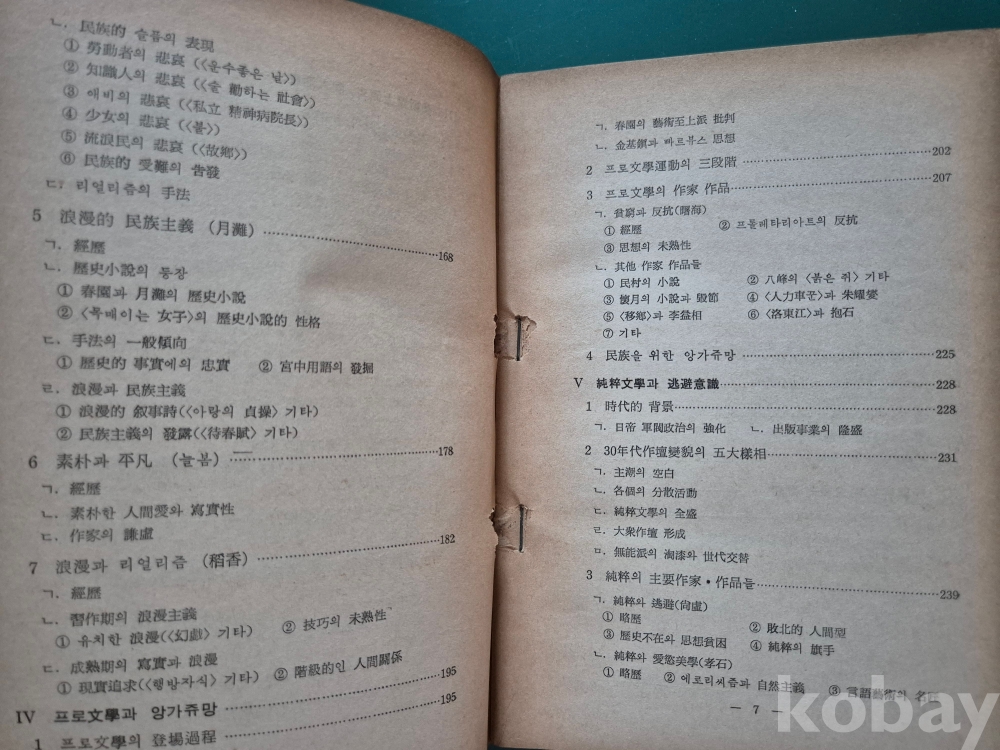 ㄴ. 民族的 슬픔의 表現
① 勞動者의 悲哀 (〈운수좋은 날〉)
② 知識人의 悲哀 (〈술 勸하는 社會〉)
③ 애비의 悲哀 (〈私立 精神病院長〉)
④ 少女의 悲哀 (〈불〉)
⑤ 流浪民의 悲哀 (〈故鄕〉)
⑥ 民族的 受難의 告發
ㄷ. 리얼리즘의 手法
5 浪漫的 民族主義 (月灘) 168
ㄱ. 經歷
ㄴ. 歷史小說의 등장
① 春園과 月灘의 歷史小說
② 〈목매이는 女子〉의 歷史小說的 性格
ㄷ. 手法의 一般傾向
① 歷史的 事實에의 忠實 ② 宮中用語의 發掘
ㄹ. 浪漫과 民族主義
① 浪漫的 叙事詩(〈아랑의 貞操〉기타)
② 民族主義의 發露(〈待春賦〉기타)
6 素朴과 平凡 (늘봄) 178
ㄱ. 經歷
ㄴ. 素朴한 人間愛와 寫實性
ㄷ. 作家의 謙虛
7 浪漫과 리얼리즘 (稻香) 182
ㄱ. 經歷
ㄴ. 習作期의 浪漫主義
① 유치한 浪漫(〈幻戱〉기타) ② 技巧의 未熟性
ㄷ. 成熟期의 寫實과 浪漫
① 現實追求(〈행랑자식〉기타) ② 階級的인 人間關係
Ⅳ 프로文學과 앙가쥬망 195
1 프로文學의 登場過程 195
ㄱ. 春園의 藝術至上派 批判
ㄴ. 金基鎭과 바르뷰스 思想
2 프로文學運動의 三段階 202
3 프로文學의 作家 作品 207
ㄱ. 貧窮과 反抗(曙海)
① 經歷 ② 프롤레타리아트의 反抗
③ 思想의 未熟性
ㄴ. 其他 作家 作品들
① 民村의 小說 ② 八峰의 〈붉은 쥐〉기타
③ 懷月의 小說과 毁節 ④ 〈人力車꾼〉과 朱耀燮
⑤ 〈移鄕〉과 李益相 ⑥ 〈洛東江〉과 抱石
⑦ 기타
4 民族을 위한 앙가쥬망 225
Ⅴ 純粹文學과 逃避意識 228
1 時代的 背景 228
ㄱ. 日帝 軍閥政治의 強化 ㄴ. 出版事業의 隆盛
2 30年代作壇變貌의 五大樣相 231
ㄱ. 主潮의 空白
ㄴ. 各個의 分散活動
ㄷ. 純粹文學의 全盛
ㄹ. 大衆作壇 形成
ㅁ. 無能派의 淘漆와 世代交替
3 純粹의 主要作家·作品들 239
ㄱ. 純粹와 逃避(尙虛)
① 略歷 ② 敗北的 人間型
③ 歷史不在와 思想貧困 ④ 純粹의 旗手
ㄴ. 純粹와 愛慾美學(孝石)
① 略歷 ② 에로리씨즘과 自然主義 ③ 言語藝術의 名
— 7 —
kobay